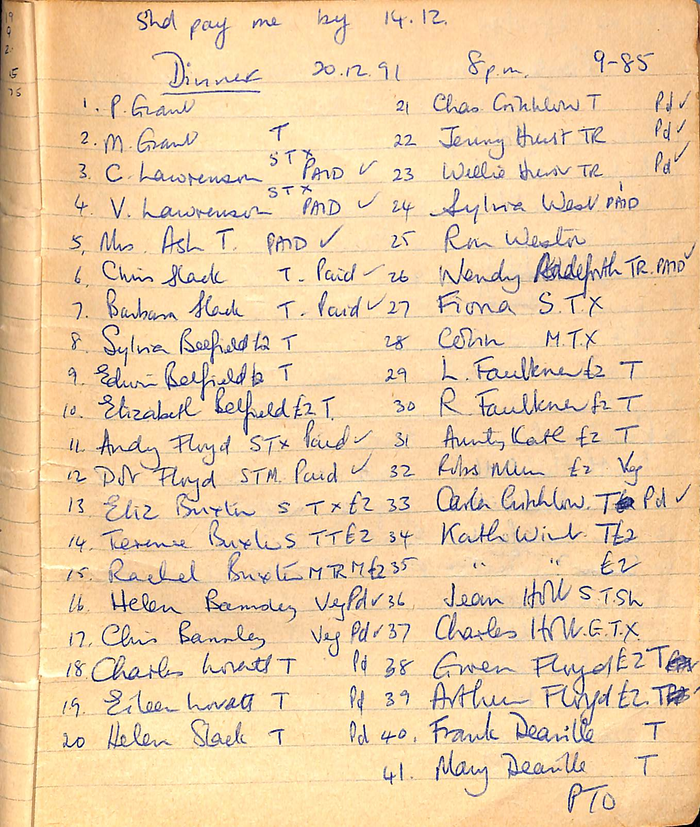 Shd pay me by 14.12.
Dinner 20.12.91 8pm. 9-85
1. P. Grant
2. M. Grant T
3. C. Lawrenson STX PAID ✓
4. V. Lawrenson STX PAID ✓
5. Mrs. Ash T. PAID ✓
6. Chris Slack T. Paid ✓
7. Barbara Slack T. Paid ✓
8. Sylvia Belfield £2 T
9. Edwin Belfield £2 T
10. Elizabeth Belfield £2 T.
11. Andy Floyd STX Paid ✓
12 Floyd STM. Paid ✓
13 Eliz Buxton S T X £2
14. Terence Buxton S T T £2
15. Rachel Buxton M TR M £2
16. Helen Barnsley Veg Pd ✓
17. Chris Barnsley Veg Pd ✓
18. Charles Lovatt T Pd
19. Eileen Lovatt T Pd
20 Helen Slack T Pd
21 Chas Critchlow T Pd ✓
22 Jenny Hurst TR Pd ✓
23 Willie Hurst TR Pd ✓
24 Sylvia West PAID
25 Ron Weston
26 Wendy TR. PAID ✓
27 Fiona S.T.X
28 Colin M.T.X
29 L. Faulkner £2 T
30 R. Faulkner £2 T
31 Aunty Kath £2 T
32 Robs Mum £2 Veg
33 Carla Critchlow. T Pd ✓
34 Kath Wint. T £2
35 " " £2
36 Jean Holl S.T.Sh
37 Charles Holl. G.T.X
38 Gwen Floyd £2 T
39 Arthur Floyd £2. T
40. Frank Deaville T
41. Mary Deaville T
PTO